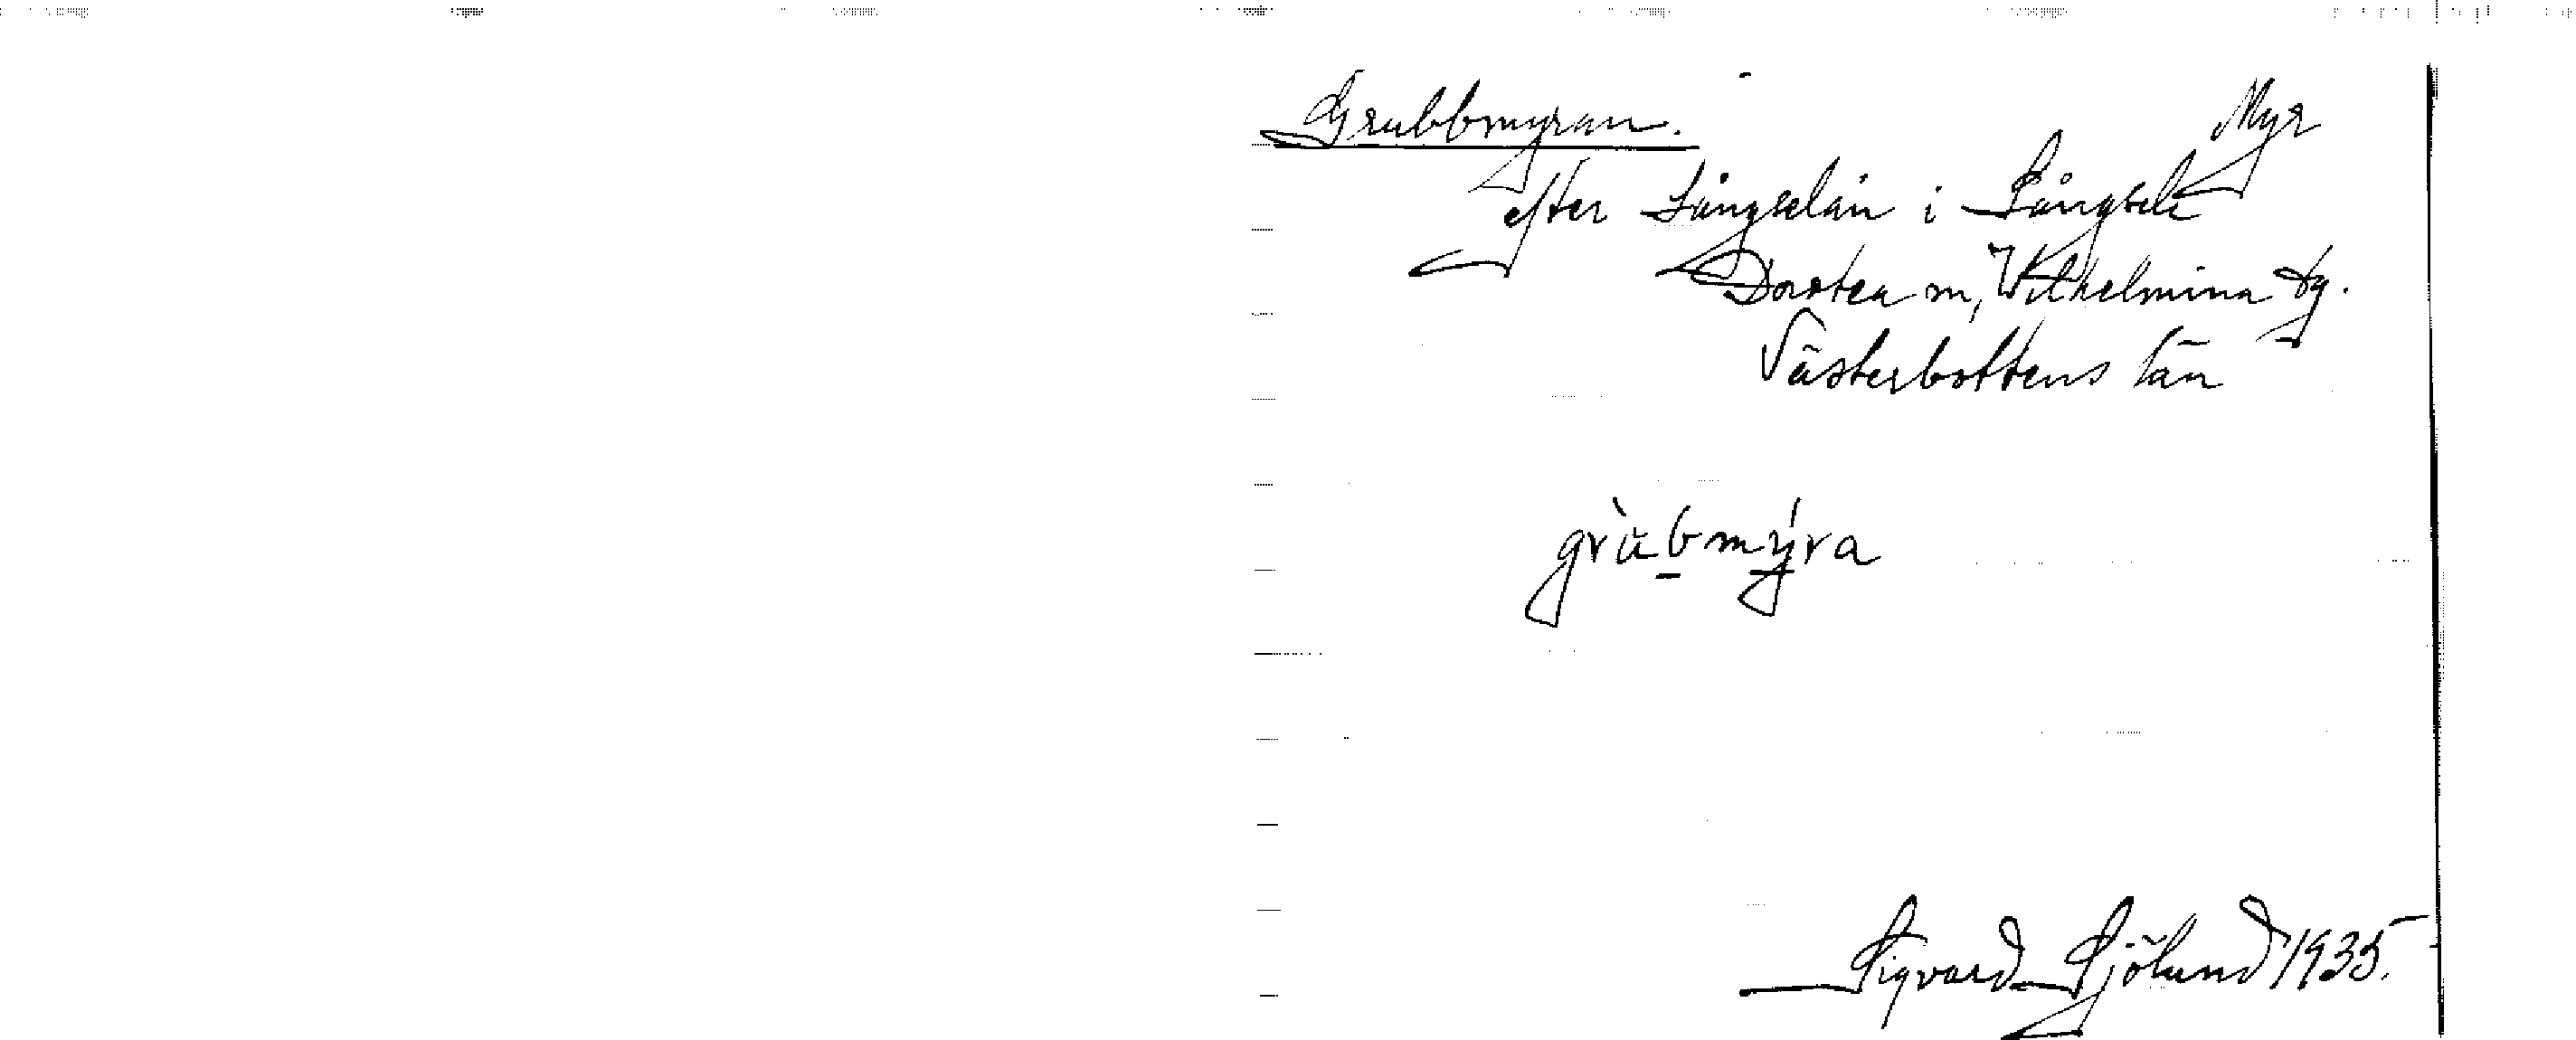 Grubbmyran. Myr
efter Långselån i Långsele
Dorotea m, Wilhelmina tg.
Västerbottens län
grùbmýra
Sigvard Sjölund 1935.